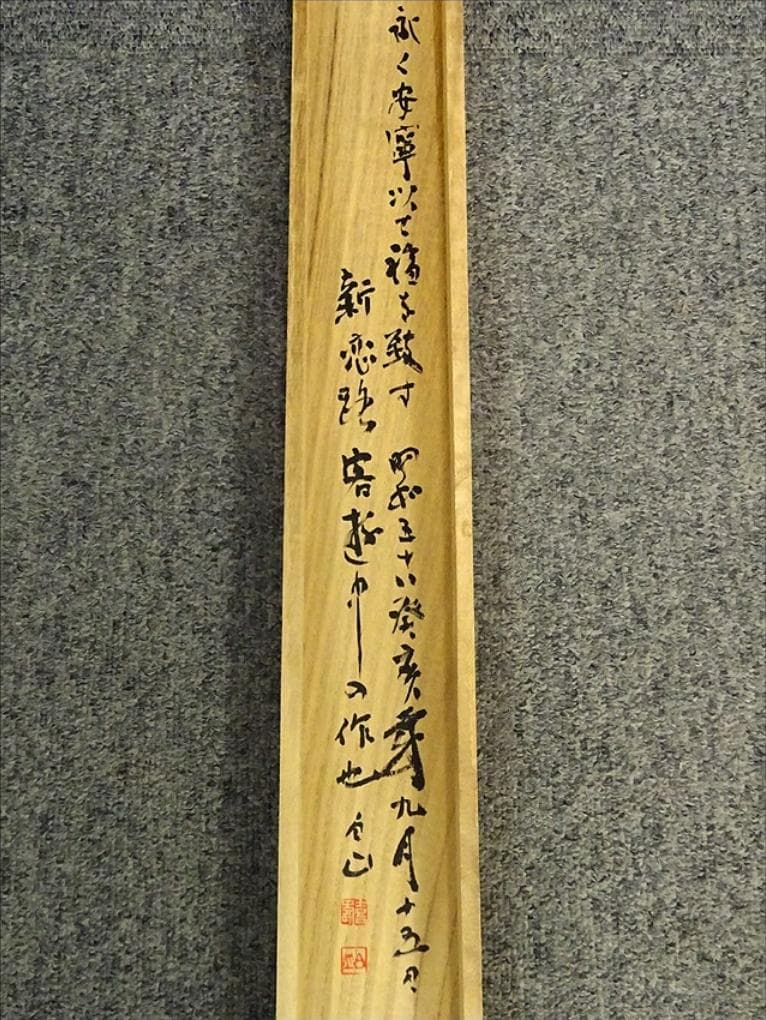 永く安寧以て福を致す 昭和五十八癸亥年九月十五日
新恋路 客遊中の作也 白山